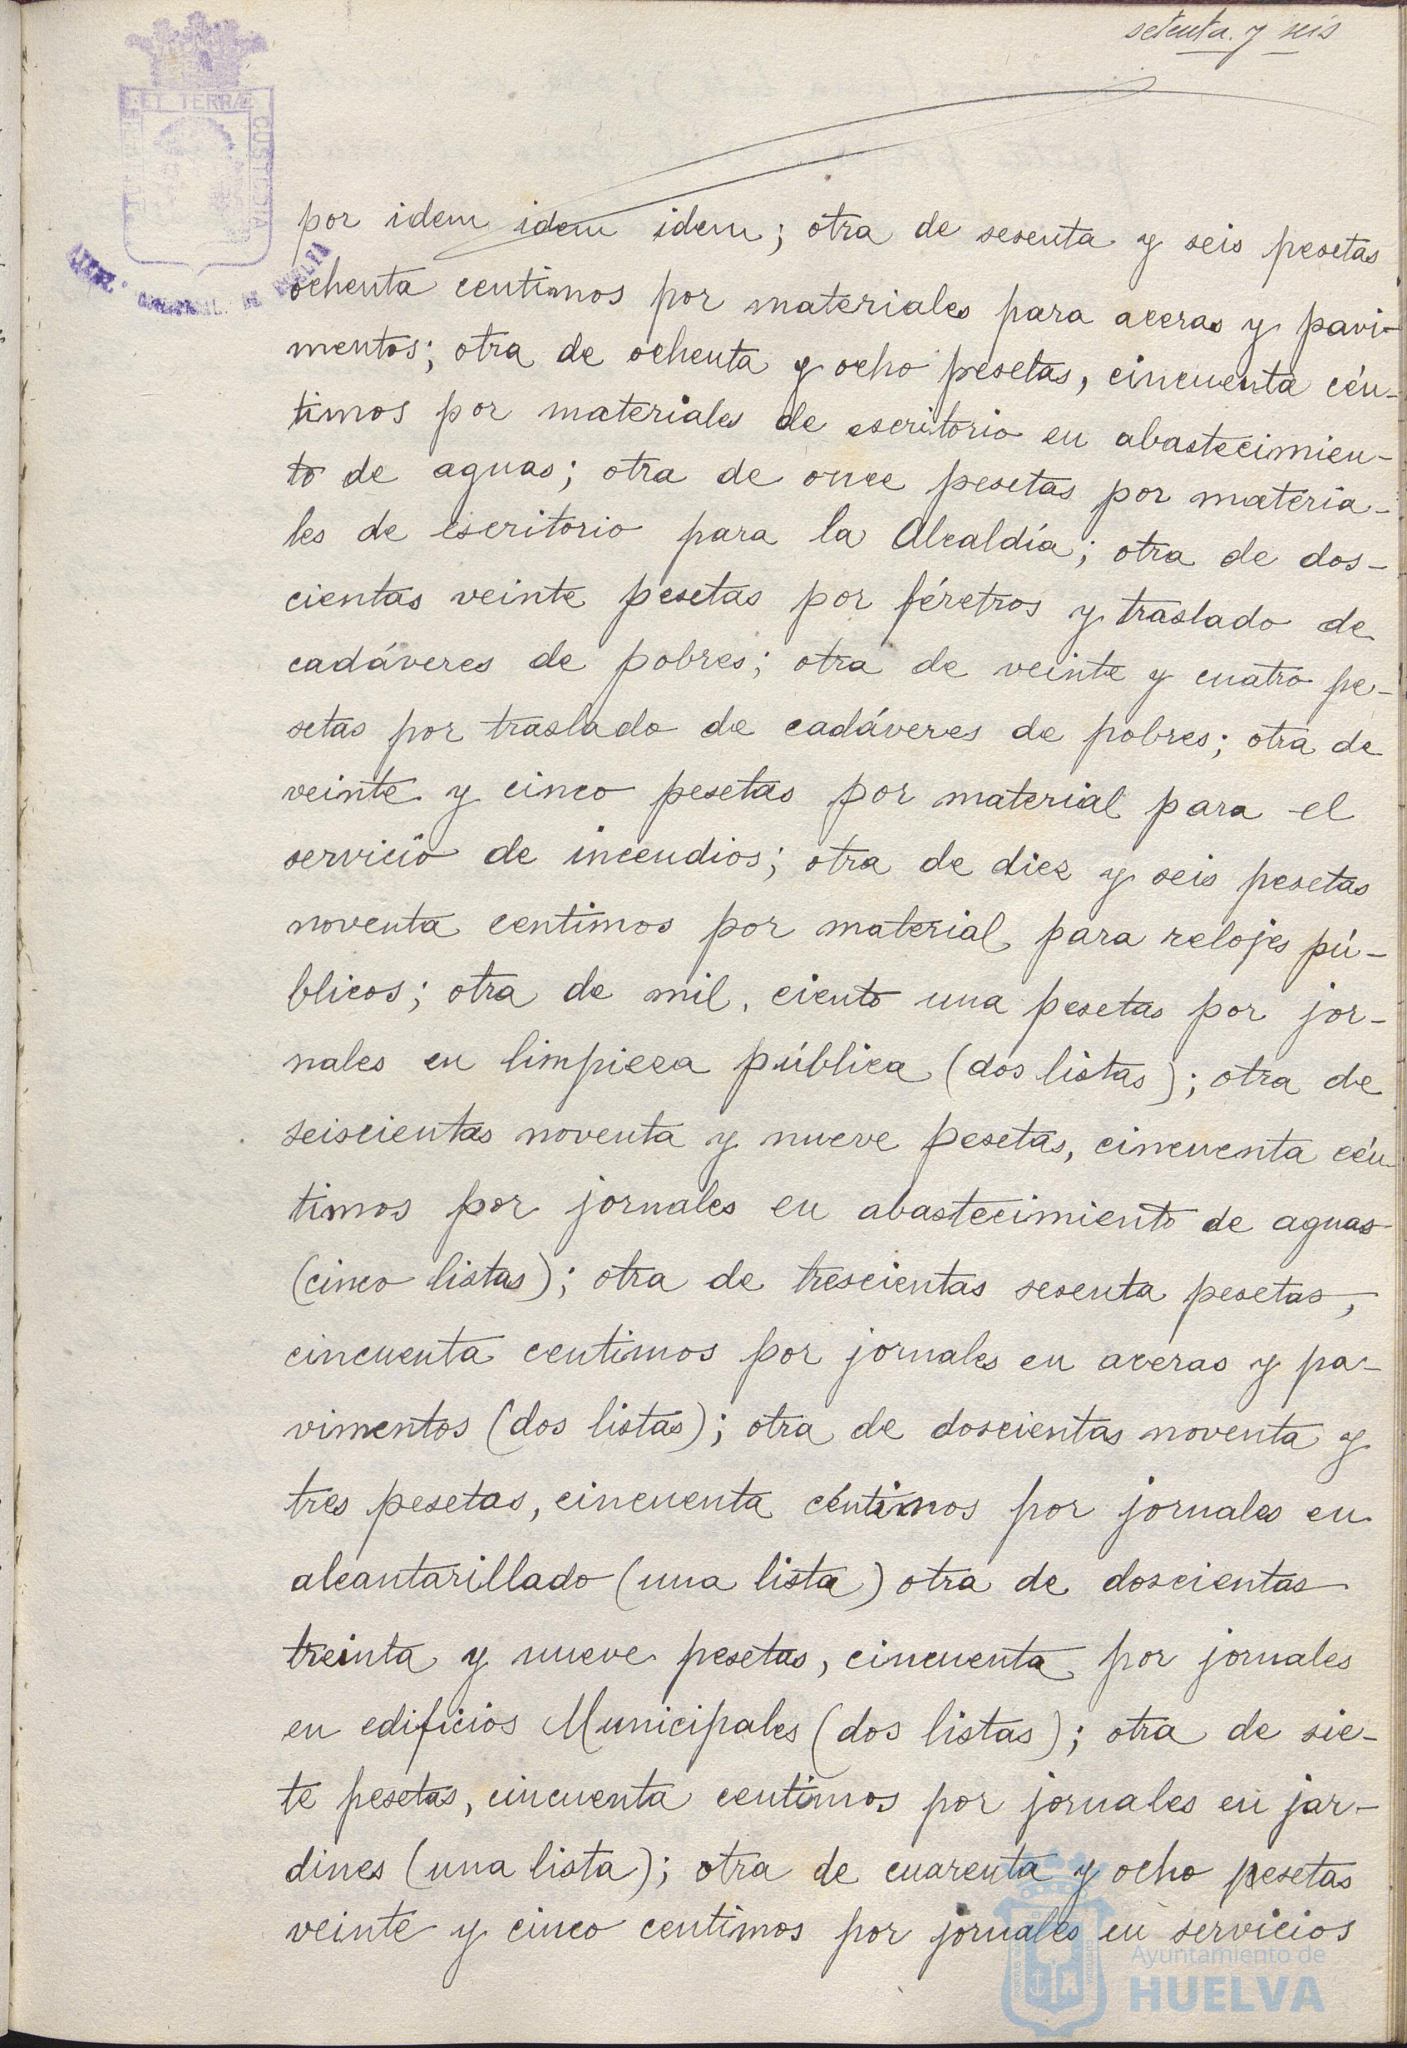 setenta y seis
ET TERRAE
CUSTODIA
por idem idem idem; otra de sesenta y seis pesetas
ochenta centimos por materiales para aceras y pavi-
mentos; otra de ochenta y ocho pesetas, cincuenta cén-
timos por materiales de escritorio en abastecimien-
to de aguas; otra de once pesetas por materia-
les de escritorio para la Alcaldía; otra de dos-
cientas veinte pesetas por féretros y traslado de
cadáveres de pobres; otra de veinte y cuatro pe-
setas por traslado de cadáveres de pobres; otra de
veinte y cinco pesetas por material para el
servicio de incendios; otra de diez y seis pesetas
noventa centimos por material para relojes pú-
blicos; otra de mil, ciento una pesetas por jor-
nales en limpieza pública (dos listas); otra de
seiscientas noventa y nueve pesetas, cincuenta cén
timos por jornales en abastecimiento de aguas
(cinco listas); otra de trescientas sesenta pesetas,
cincuenta centimos por jornales en aceras y pa-
vimentos (dos listas); otra de doscientas noventa y
tres pesetas, cincuenta céntimos por jornales en
alcantarillado (una lista) otra de doscientas
treinta y nueve pesetas, cincuenta por jornales
en edificios Municipales (dos listas); otra de sie-
te pesetas, cincuenta centimos por jornales en jar-
dines (una lista); otra de cuarenta y ocho pesetas
veinte y cinco centimos por jornales en servicios
Ayuntamiento de
HUELVA